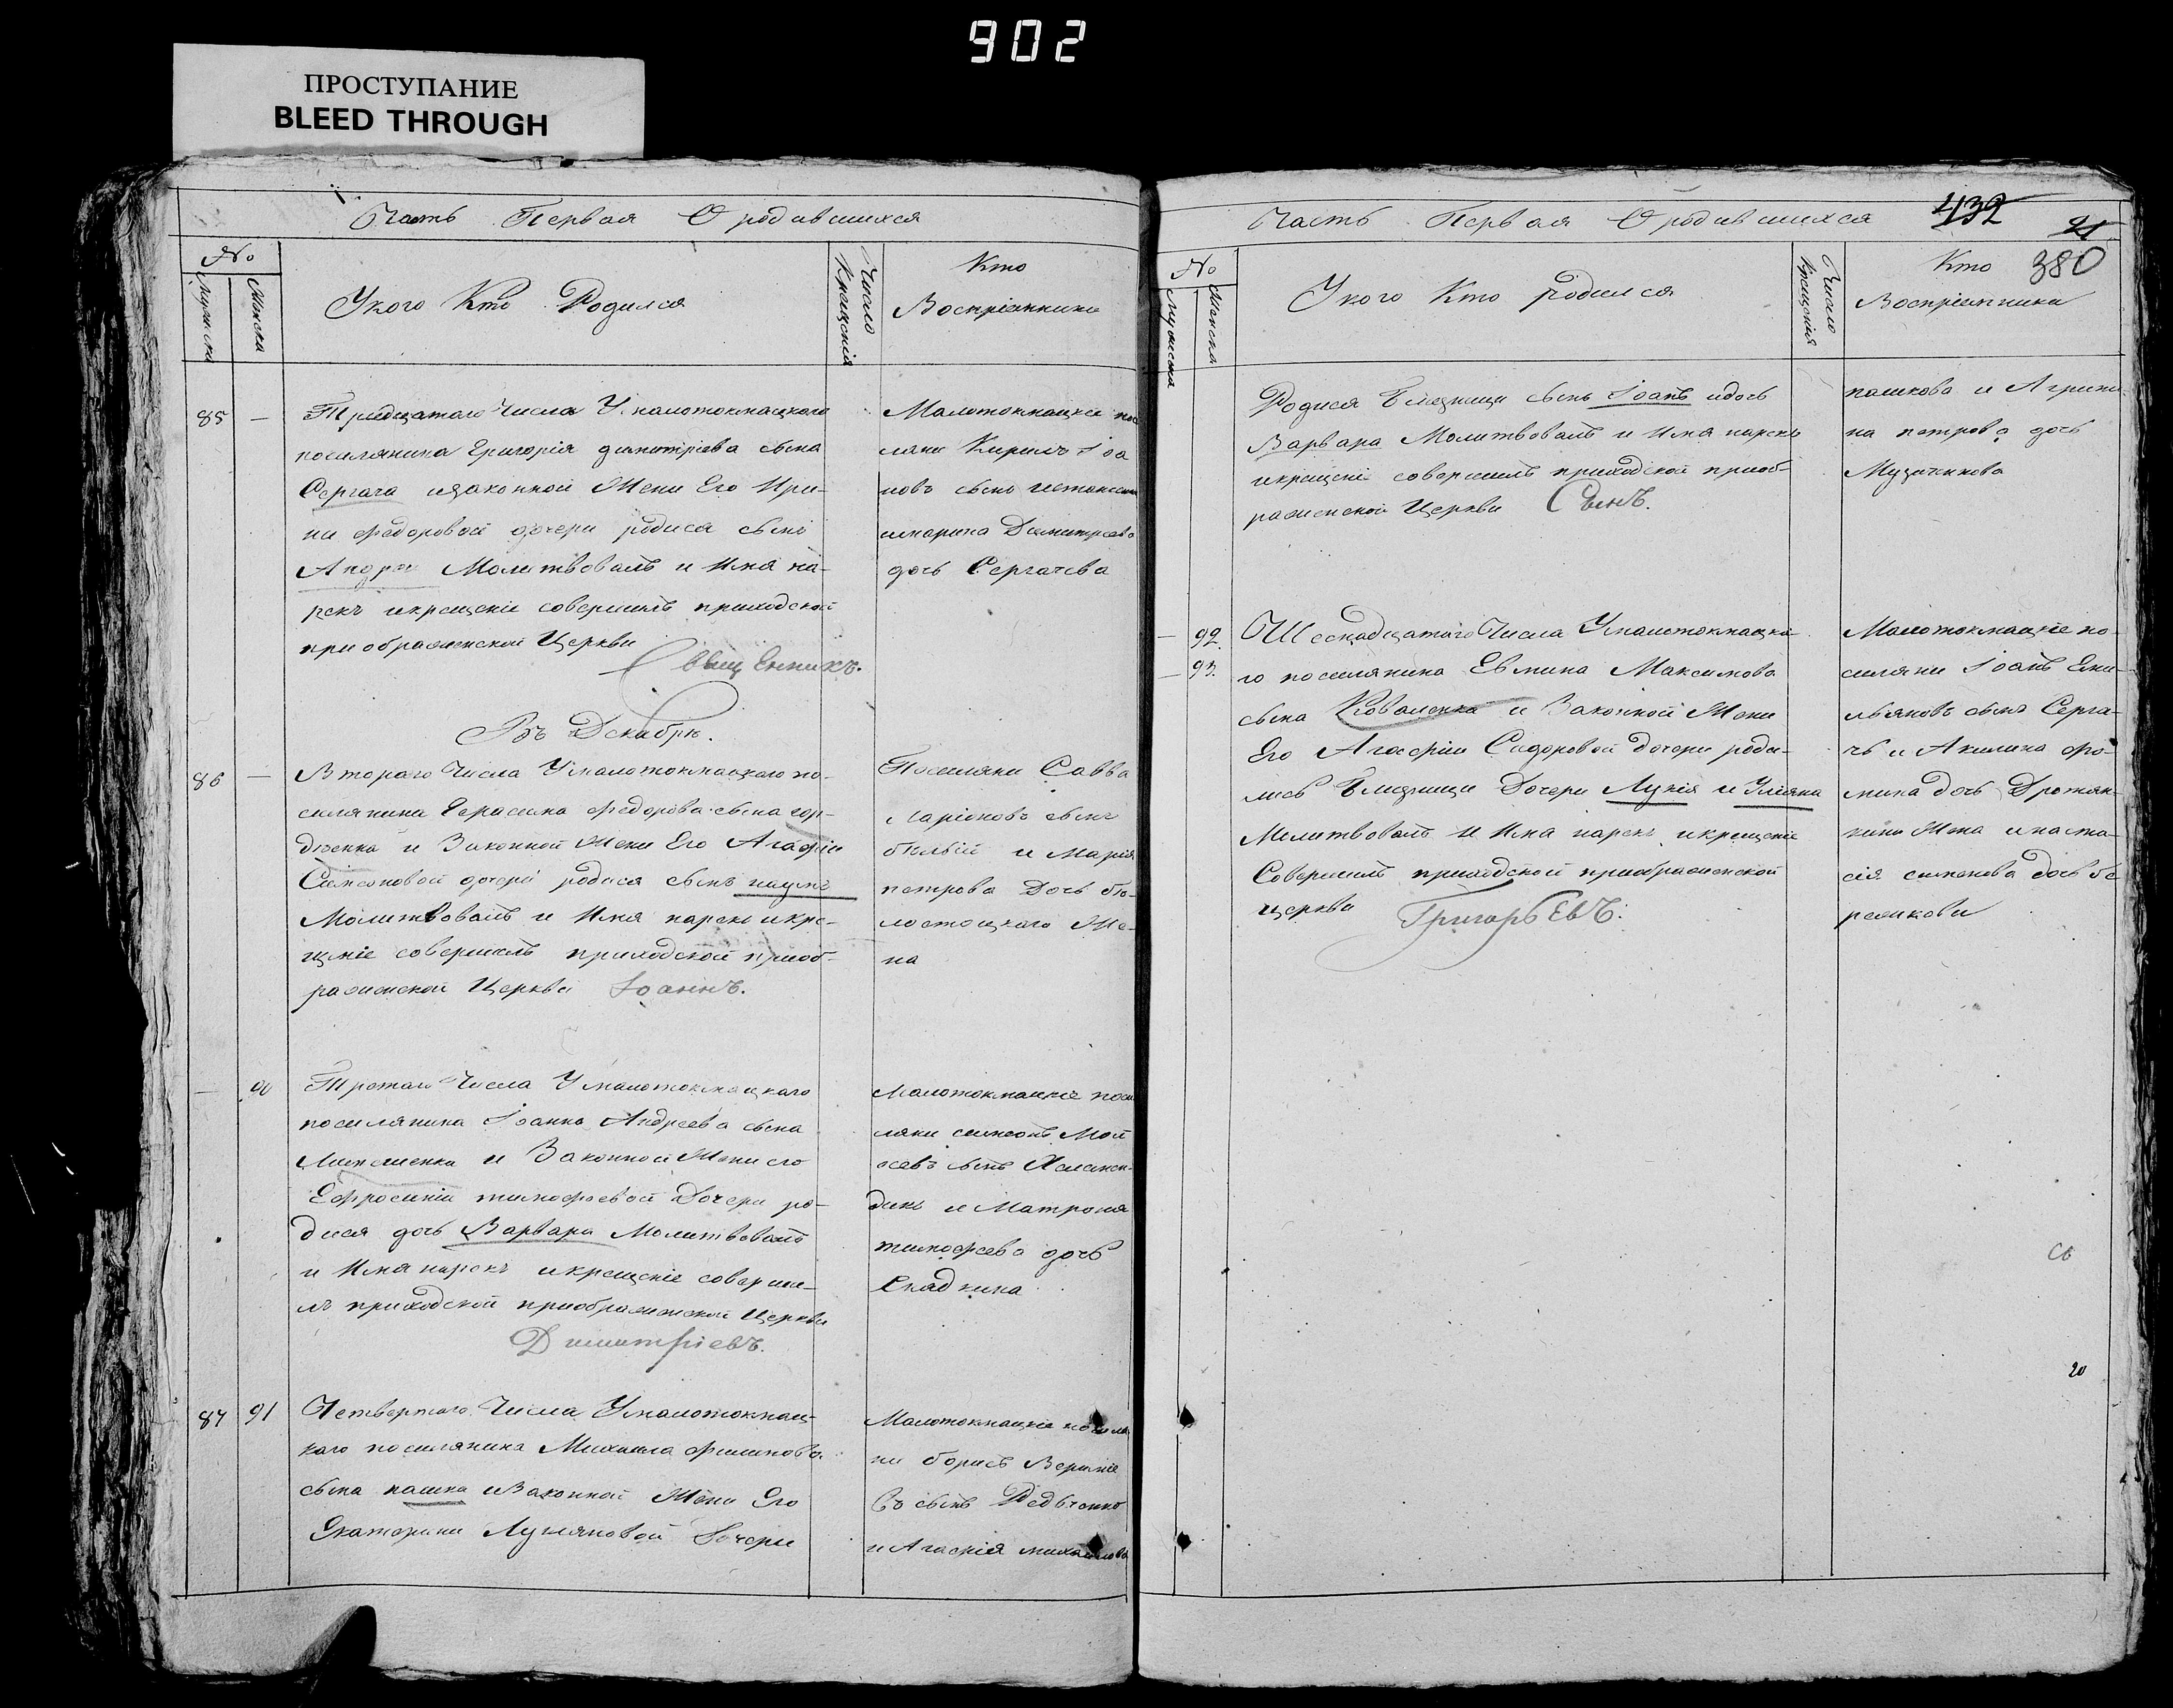 902
ПРОСТУПАНИЕ
BLEED THROUGH
Часть Первая О родившихся
№
Мужеска
Женска
Укого Кто Родился
Число Крещенія
Кто
Воспріемники
85 —
Тридцатаго Числа Умалотокмацкого
поселянина Григорія димитріева сына
Сергача изаконной Жени Его Ири-
ни федоровой дочери родися сынъ
Андрей Молитвовалъ и Имя на-
рекъ икрещеніе совершилъ приходской
приображенской Церкви
Священникъ.
Малотокмацкіе посе
ляни Кирилъ Іоа
новъ сынъ
имарина Димитріева
дочь Сергачева
Въ Декабрѣ.
86 —
Втораго Числа Умалотокмацкого по-
селянина Герасима федорова сына гор-
дѣенка и Законной Жени Его Агафіи
Симоновой дочери родися сынъ наумъ
Молитвовалъ и Имя нарекъ икре-
щеніе совершилъ приходской приоб-
раженской Церкви Іоаннъ.
Поселяни Савва
Ларіоновъ сынъ
бѣлый и Марія
петрова Дочь бѣ-
лостоцкого Же-
на
— 90
Третаго Числа Умалотокмацкого
поселянина Іоанна Андреева сына
и Законной Жени его
Ефросиніи тимофеевой Дочери ро-
дися дочь Варвара Молитвовалъ
и Имя нарекъ икрещеніе соверши-
лъ приходской приображенской Церкви
Димитріевъ.
Малотокмацкіе посе
ляни симеонъ Мой
сеевъ сынъ
и Матрона
тимофеева дочь
87 91
Четвертаго Числа Умалотокмац-
каго поселянина Михаила филипова
сына пашка изаконной Жени Его
Екатерини Лукіяновой Дочери
Малотокмацкіе поселя
ни борисъ
въ сынъ Дедѣченко
и Агафія михайлова
Часть Первая О родившихся
432
21
380
№
Мужеска
Женска
Укого Кто родился
Число Крещенія
Кто
Воспріемники
Родися Близнецы сынъ Іоанъ идочь
Варвара Молитвовалъ и Имя нарекъ
икрещеніе совершилъ приходской приоб-
раженской Церкви Сынъ.
пашкова и Агрипи-
на петрова дочь
Музиченкова
— 92.
— 93.
Шеснадцатаго Числа Умалотокмацка-
го поселянина Евмина Максимова
сына Коваленка и Законной Жени
Его Агафіи Сидоровой дочери роди-
лись Близнецы Дочери Лукія и Уліяна
Молитвовалъ и Имя нарекъ икрещеніе
Совершилъ приходской приображенской
церкви Григорьевъ.
Малотокмацкіе по-
селяни Іоанъ Еме-
льяновъ сынъ Серга-
чъ и Акилина фо-
мина дочь
Жена инаста-
сія семенова дочь бе
режкови
20